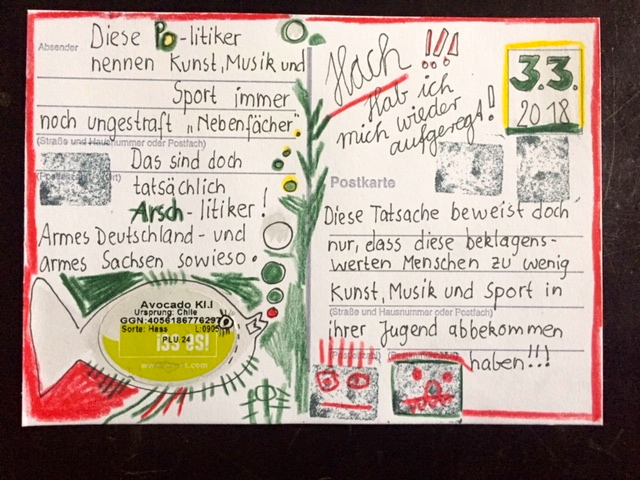 Absender
Diese Po-litiker
nennen Kunst, Musik und
Sport immer
noch ungestraft „Nebenfächer"
(Straße und Hausnummer oder Postfach)
Das sind doch
tatsächlich
Arsch-litiker!
Armes Deutschland - und
armes Sachsen sowieso.
Avocado Kl.I
Ursprung: Chile
GGN:4056186776297
Sorte: Hass L:0905
PLU 24
Hach !!!
Hab ich
mich wieder
aufgeregt!
3.3.
2018
Postkarte
Diese Tatsache beweist doch
nur, dass diese beklagens-
werten Menschen zu wenig
Kunst, Musik und Sport in
(Straße und Hausnummer oder Postfach)
ihrer Jugend abbekommen
haben!!!